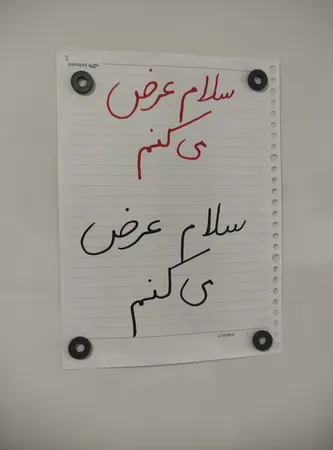 سلام عرض
می کنم
سلام عرض
می کنم